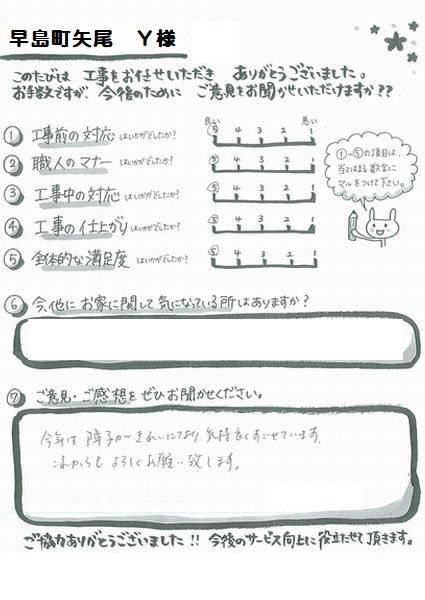 早島町矢尾　Ｙ様
このたびは 工事をお任せいただき ありがとうございました。
お手数ですが、今後のために ご意見をお聞かせいただけますか??
良い 悪い
① 工事前の対応 はいかがでしたか? 5 4 3 2 1
② 職人のマナー はいかがでしたか? 5 4 3 2 1
③ 工事中の対応 はいかがでしたか? 5 4 3 2 1
④ 工事の仕上がり はいかがでしたか? 5 4 3 2 1
⑤ 全体的な満足度 はいかがでしたか? 5 4 3 2 1
①~⑤の項目は、
当てはまる数字に
マルをつけて下さい。
⑥ 今、他に お家に関して 気になっている所 はありますか?
⑦ ご意見・ご感想を ぜひ お聞かせください。
今年は 障子がきれいになり 気持良くすごせています。
これからも よろしくお願い致します。
ご協力ありがとうございました!! 今後のサービス向上に役立たせて頂きます。